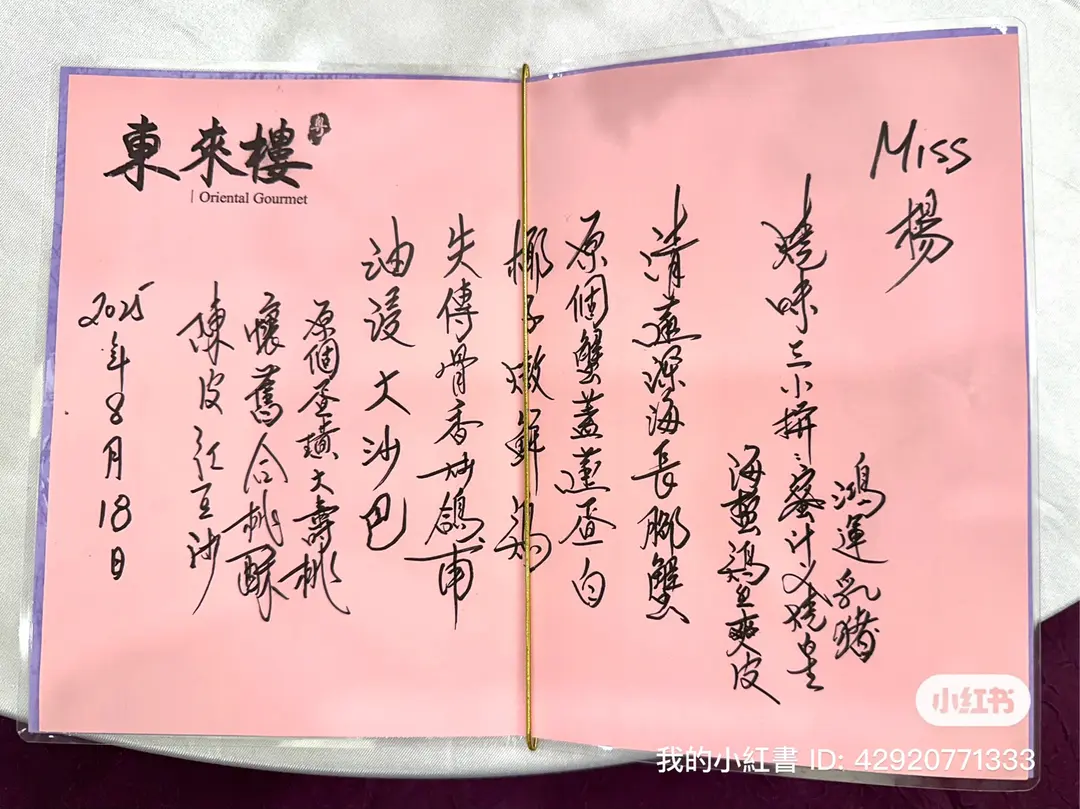 Miss
楊
鴻運乳豬
燒味三小拼：蜜汁叉燒皇
海蜇鷄爽皮
清蒸深海長腳蟹
原個蟹蓋蒸蛋白
椰子燉鮮鷄
失傳骨香炒鴿甫
油浸大沙巴
原個蛋大壽桃
懷舊合桃酥
陳皮紅豆沙
2025年8月18日
東來樓
Oriental Gourmet
小红书
我的小紅書 ID: 42920771333